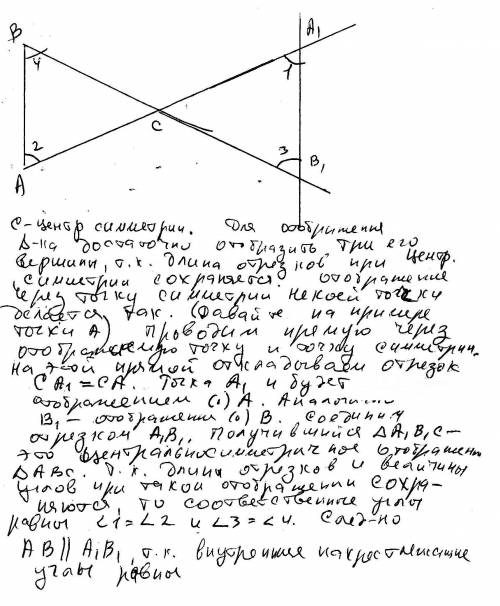 B
4
2
A
C
A1
1
3
B1
C-центр симметрии. Для отображения
Δ-на достаточно отобразить три его
вершины, т.к. длина отрезков при центр.
симметрии сохраняется. Отображение
через точку симметрии некоей точки
делается так. (Давайте на примере
точки A) Проводим прямую через
отображаемую точку и точку симметрии.
на этой прямой откладываем отрезок
CA1 = CA. Точка A1 и будет
отображением (·) A. Аналогично
B1 - отображение (·) B. Соединим
отрезком A1B1, Получившийся ΔA1B1C-
это центральносимметричное отображение
ΔABC. Т.к. длины отрезков и величины
углов при таком отображении сохра-
няются, то соответственные углы
равны ∠1=∠2 и ∠3=∠4. След-но
AB || A1B1, т.к. внутренние накрестлежащие
углы равны